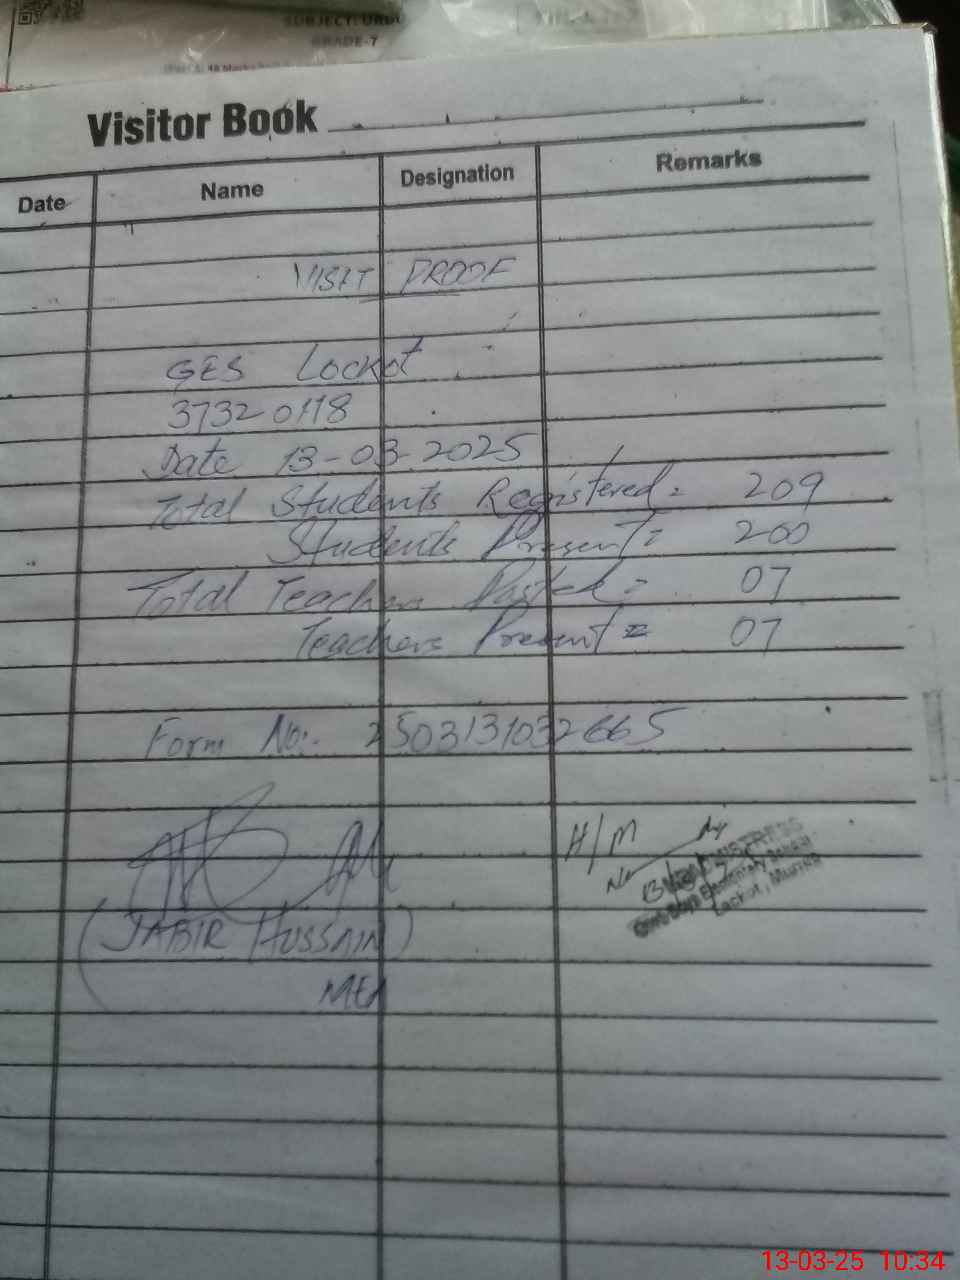 SUBJECT: URDU
GRADE-7
Visitor Book
Date Name Designation Remarks
VISIT PROOF
GES Lockot
37320118
Date 13-03-2025
Total Students Registered = 209
Students Present = 200
Total Teachers Posted = 07
Teachers Present = 07
Form No:. 2503131032665
H/M
(JABIR HUSSAIN)
MEA
Elementary School
Lackot, Murree
13-03-25 10:34